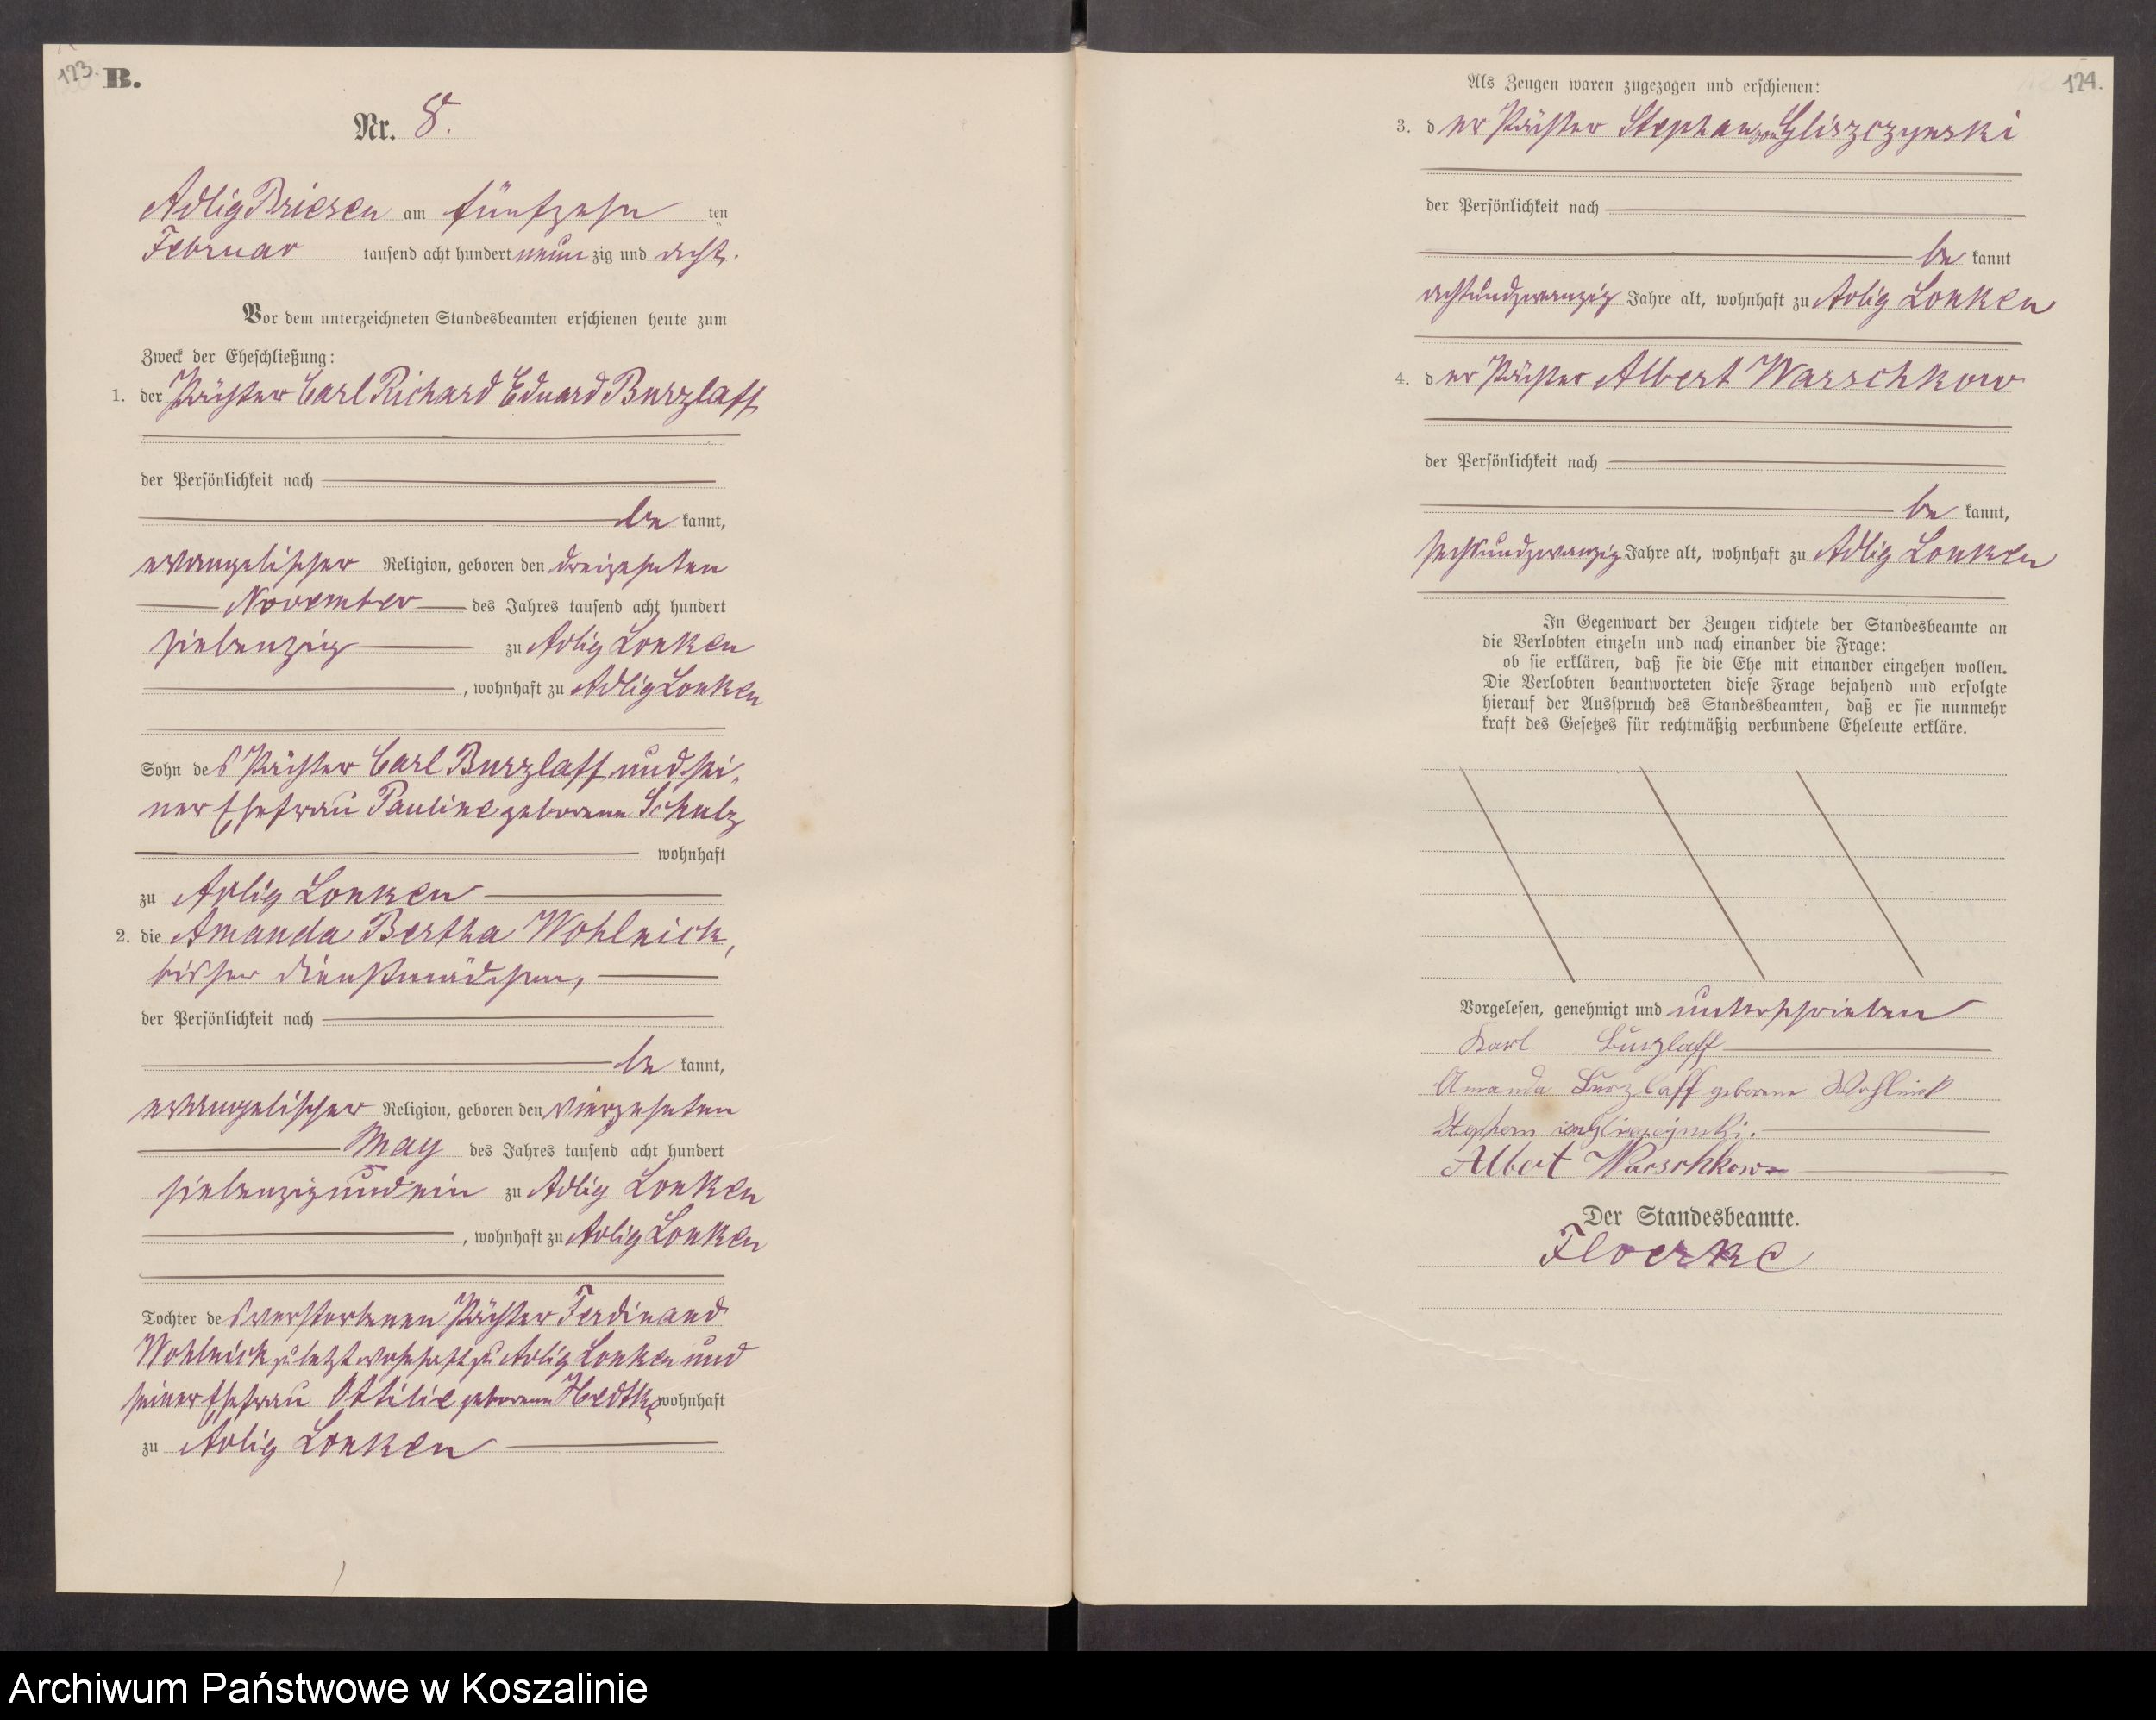 123.
B.
Nr. 8.
Adlig Briesen am fünfzehn ten
Februar tausend acht hundert neun zig und acht.
Vor dem unterzeichneten Standesbeamten erschienen heute zum
Zweck der Eheschließung:
1. der Pächter Carl Richard Eduard Burzlaff
der Persönlichkeit nach
be kannt,
evangelischer Religion, geboren den dreizehnten
November des Jahres tausend acht hundert
siebenzig zu Adlig Lonken
, wohnhaft zu Adlig Lonken
Sohn des Pächter Carl Burzlaff und sei-
ner Ehefrau Pauline geborene Schulz
wohnhaft
zu Adlig Lonken
2. die Amanda Bertha Wohlnick,
bisher Dienstmädchen,
der Persönlichkeit nach
be kannt,
evangelischer Religion, geboren den vierzehnten
May des Jahres tausend acht hundert
siebenzig und ein zu Adlig Lonken
, wohnhaft zu Adlig Lonken
Tochter des verstorbenen Pächter Ferdinand
Wohlnick zuletzt wohnhaft zu Adlig Lonken und
seiner Ehefrau Ottilie geborene wohnhaft
zu Adlig Lonken
124.
Als Zeugen waren zugezogen und erschienen:
3. der Pächter Stephan von Gliszczynski
der Persönlichkeit nach
be kannt
achtundzwanzig Jahre alt, wohnhaft zu Adlig Lonken
4. der Pächter Albert Warschkow
der Persönlichkeit nach
be kannt,
sechsundzwanzig Jahre alt, wohnhaft zu Adlig Lonken
In Gegenwart der Zeugen richtete der Standesbeamte an
die Verlobten einzeln und nach einander die Frage:
ob sie erklären, daß sie die Ehe mit einander eingehen wollen.
Die Verlobten beantworteten diese Frage bejahend und erfolgte
hierauf der Ausspruch des Standesbeamten, daß er sie nunmehr
kraft des Gesetzes für rechtmäßig verbundene Eheleute erkläre.
Vorgelesen, genehmigt und unterschrieben
Karl Burzlaff
Amanda Burzlaff geborene Wohlnick
Stephan von Gliszczynski.
Albert Warschkow
Der Standesbeamte.
Floerke
Archiwum Państwowe w Koszalinie